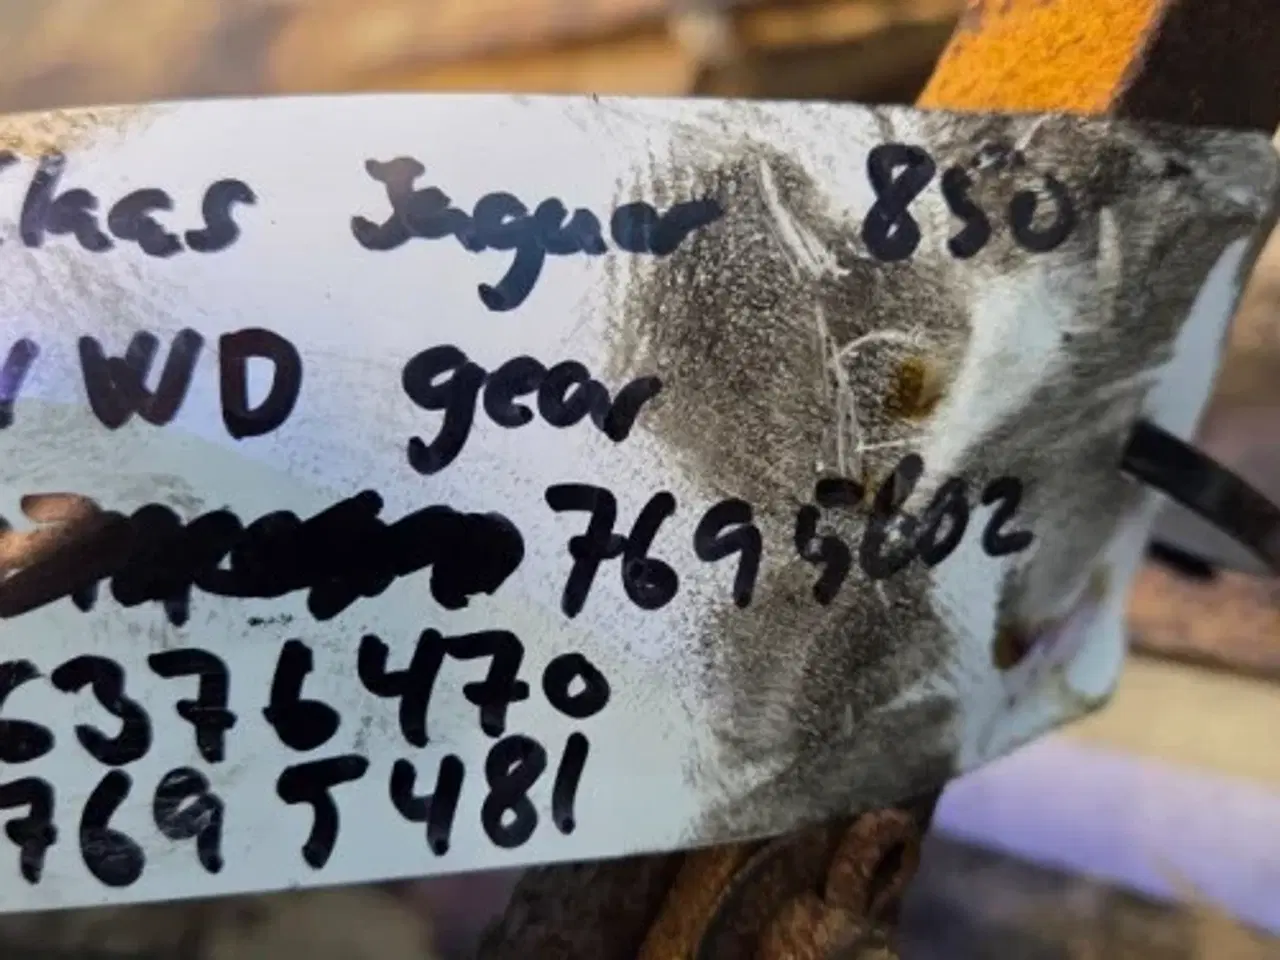 Claas Jaguar 850
WD gear
7695602
6376470
769 T481